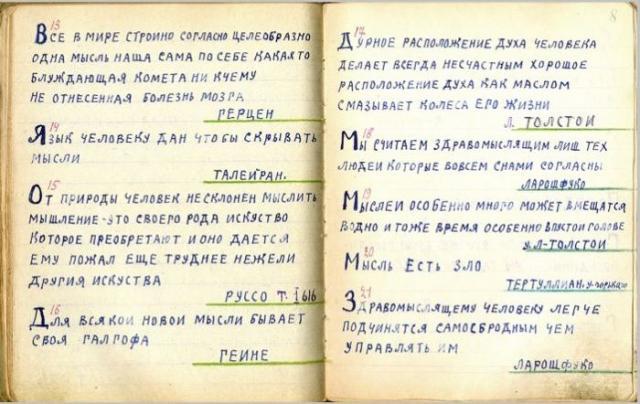 13
Все в мире строино согласно целеобразно
одна мысль наша сама по себе какаято
блуждающая комета ни кчему
не отнесенная болезнь мозра
Герцен
14
Язык человеку дан чтобы скрывать
мысли
Талейран.
15
От природы человек несклонен мыслить
мышление-это своего рода искуство
которое преобретают и оно дается
ему пожал еще труднее нежели
другия искуства
Руссо т. I 616
16
Для всякой новой мысли бывает
своя галгофа
Гейне
8
17
Дурное расположение духа человека
делает всегда несчастным хорошое
расположение духа как маслом
смазывает колеса его жизни
Л. Толстои
18
Мы считаем здравомыслящим лиш тех
людеи которые вовсем снами согласны
Ларошфуко
19
Мыслеи особенно много может вмещатся
водно и тоже время особенно впустои голове
Л-Толстои
20
Мысль Есть Зло
Тертуллиан.
21
Здравомыслящему человеку легче
подчинятся самосбродным чем
управлять им
Ларошфуко